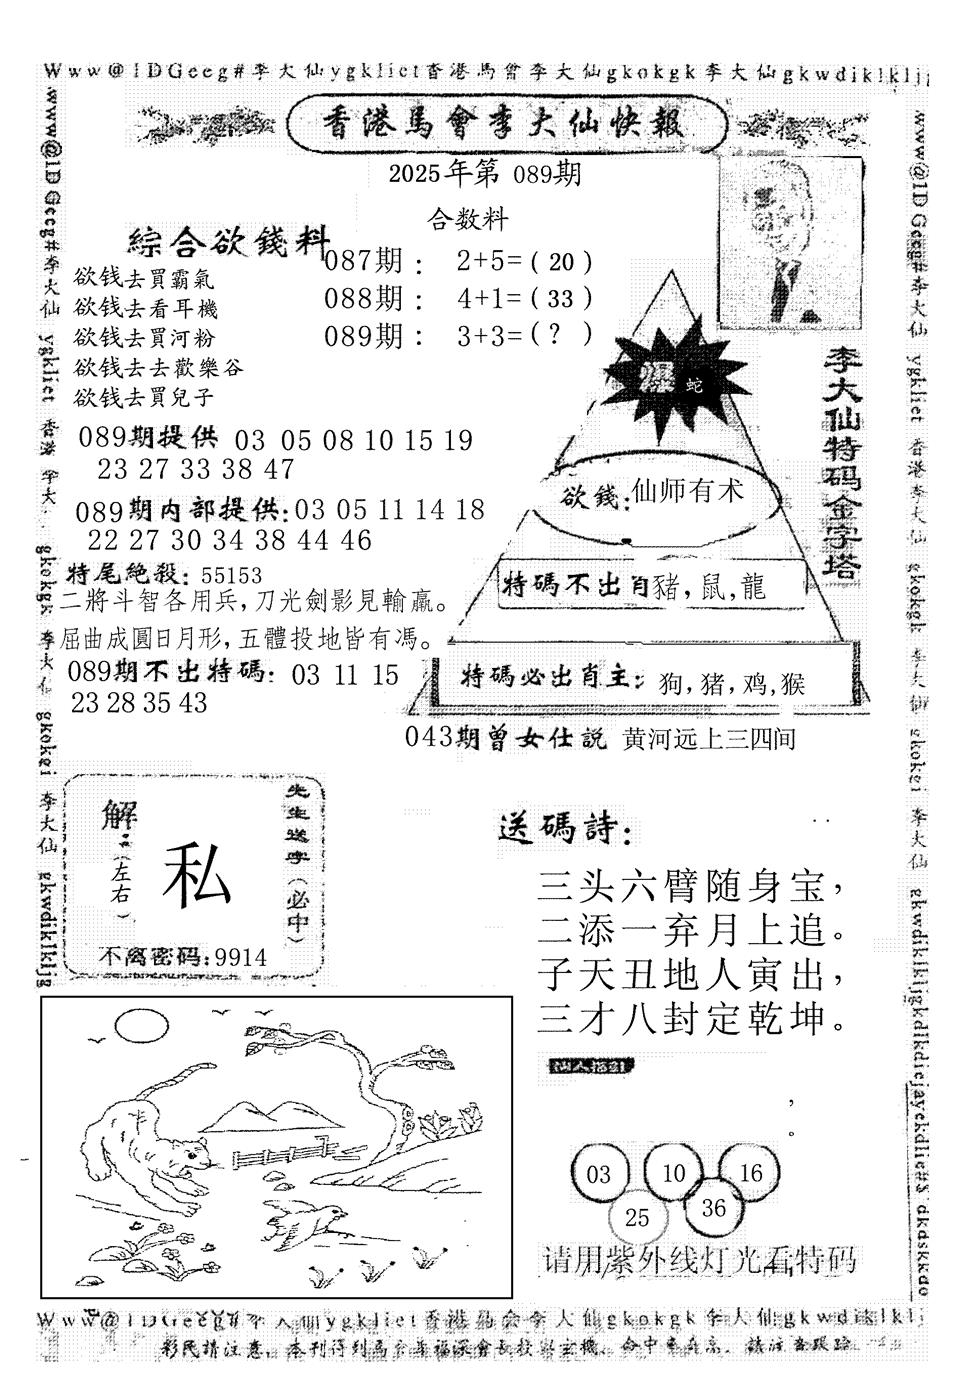 Www@1DGeeg#李大仙ygklict香港馬會李大仙gkokgk李大仙gkwdiklkljg
香港馬會李大仙快報
2025年第 089期
合数料
綜合欲錢料
欲钱去買霸氣
欲钱去看耳機
欲钱去買河粉
欲钱去去歡樂谷
欲钱去買兒子
087期： 2+5=( 20 )
088期： 4+1=( 33 )
089期： 3+3=( ? )
爆 蛇
李大仙特码金字塔
089期提供 03 05 08 10 15 19
23 27 33 38 47
欲錢:仙师有术
089期内部提供:03 05 11 14 18
22 27 30 34 38 44 46
特碼不出肖豬,鼠,龍
特尾絶殺: 55153
二將斗智各用兵,刀光劍影見輸贏。
屈曲成圓日月形,五體投地皆有馮。
089期不出特碼: 03 11 15
23 28 35 43
特碼必出肖主: 狗,猪,鸡,猴
043期曾女仕説 黄河远上三四间
解:(左右)
私
先生送字(必中)
不离密码:9914
送碼詩:
三头六臂随身宝,
二添一弃月上追。
子天丑地人寅出,
三才八封定乾坤。
,
。
03 10 16
25 36
请用紫外线灯光看特码
Www@1DGeeg#李大仙ygklict香港馬会李大仙gkokgk李大仙gkwdiklklj